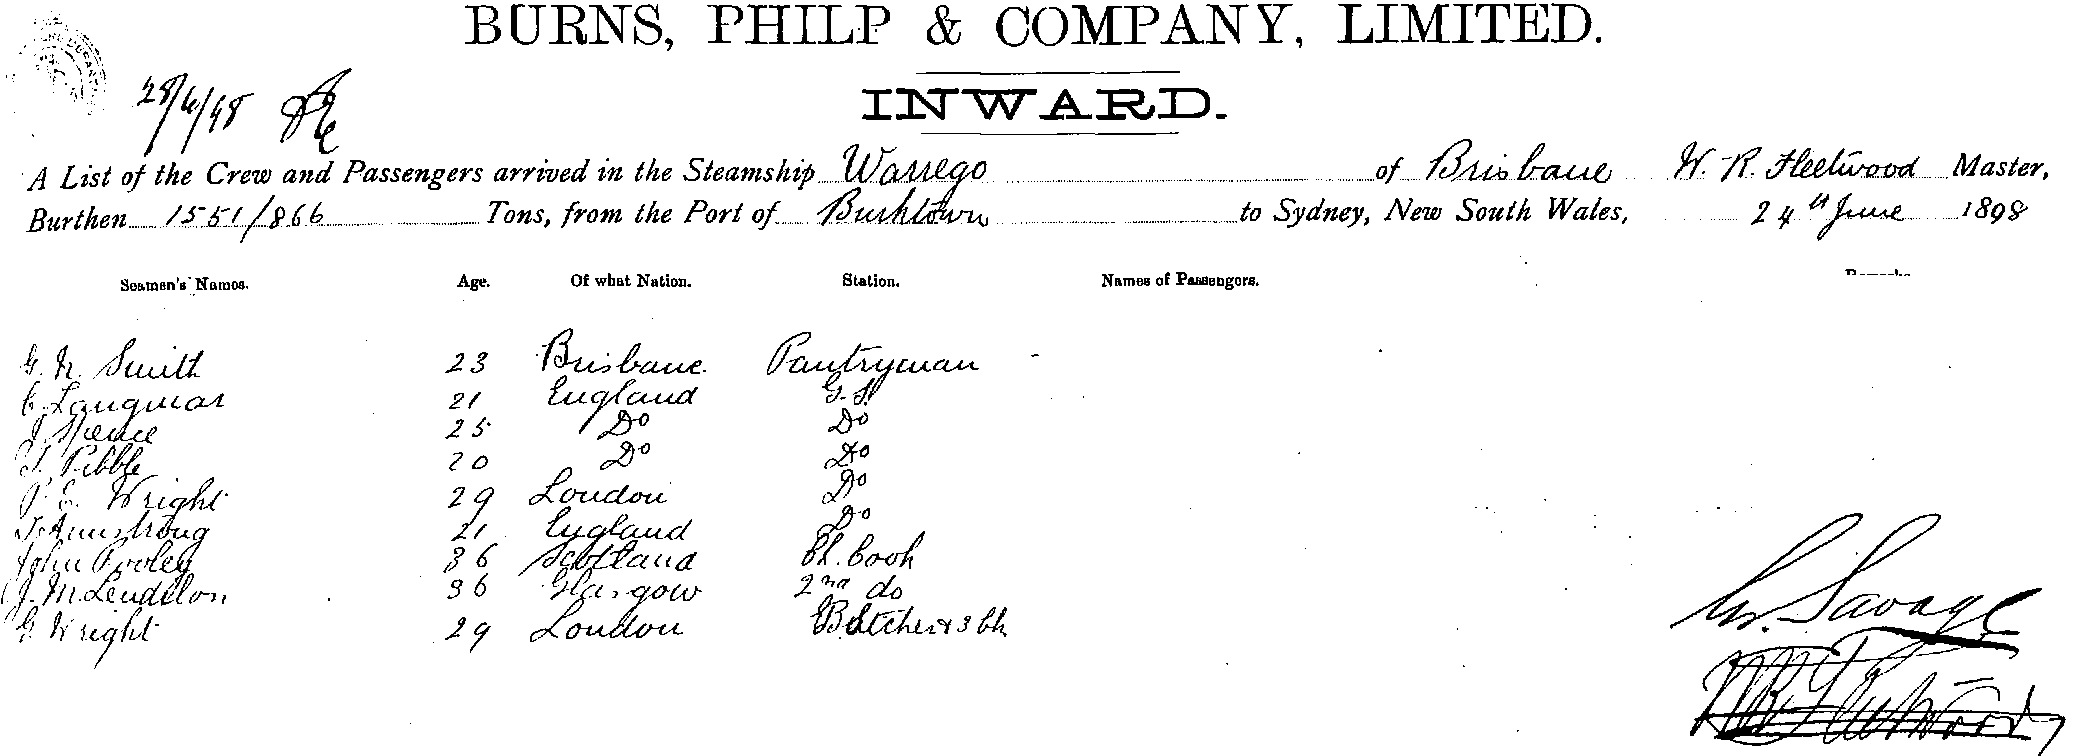 BURNS, PHILP & COMPANY, LIMITED.
28/6/98
INWARD.
A List of the Crew and Passengers arrived in the Steamship Warrego of Brisbane W. R. Fleetwood Master,
Burthen 1551/866 Tons, from the Port of Burktown to Sydney, New South Wales, 24th June 1898
Seamen's Names. Age. Of what Nation. Station. Names of Passengers. Remarks
G. N. Smith 23 Brisbane. Pantryman
C. Langmar 21 England G. S.
J. Spence 25 Do Do
T. Pibble 20 Do Do
P. E. Wright 29 London Do
J. Armstrong 21 England Do
John Pooley 36 Scotland Ch. Cook
J. 36 Glasgow 2nd do
G. Wright 29 London Butcher & 3 Ck
Savage
W R Fleetwood